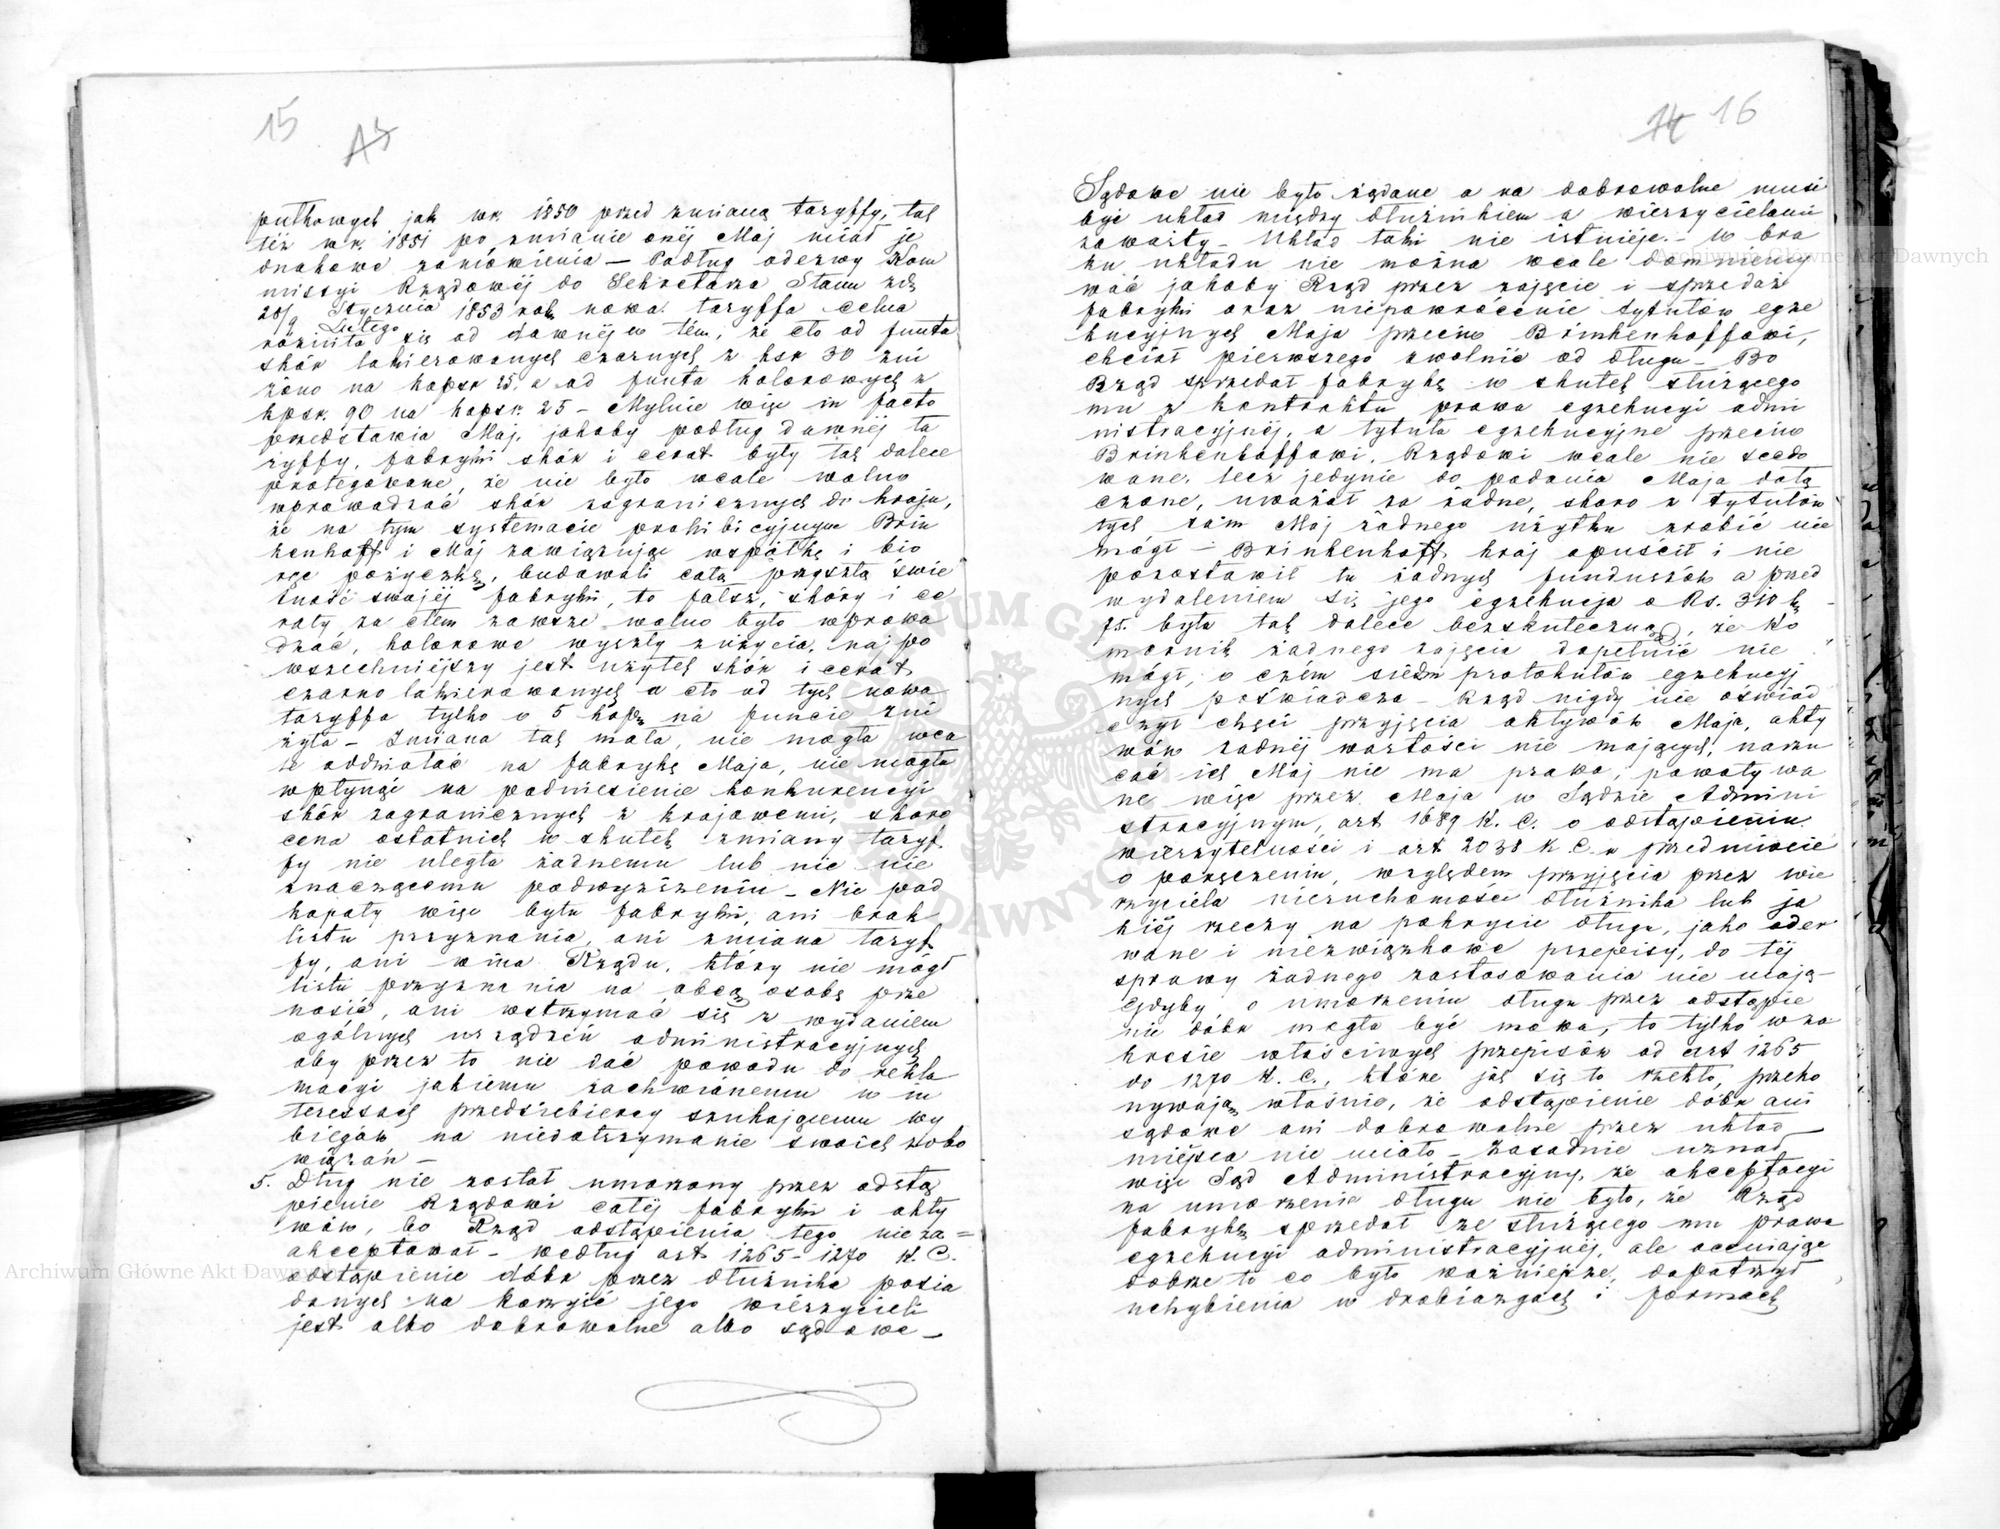 15 A5
pułkowych jak w r. 1850 przed zmianą taryffy, tak
też w r. 1851 po zmianie onéj Maj miał je
dnakowe zamówienia — Podług odezwy Kom
missyi Rządowéj do Sekretarza Stanu z d.
28/9 Stycznia/Lutego 1853 rok nowa taryffa celna
różniła się od dawnéj w tém, że cło od funta
skór lakierowanych czarnych z kop 30 zni
żono na kopiek 25, a od funta kolorowych z
kopiek. 90 na kopiek. 25 — Mylnie więc in facto
przedstawia Maj, jakoby podług dawnéj ta
ryffy, fabryki skór i cerat były tak dalece
protegowane, że nie było wcale wolno
wprowadzać skór zagranicznych do kraju,
że na tym systemacie prohibicyjnym Brin
kenhoff i Maj zawiązując wspólkę i bio
rąc pożyczkę, budowali całą przyszłą świe
tność swojéj fabryki, to fałsz, skóry i ce
raty za cłem zawsze wolno było wprowa
dzać, kolorowe wyszły z użycia, najpo
wszechniejszy jest użytek skór i cerat
czarno lakierowanych a cło od tych nowa
taryffa tylko o 5 kop na funcie zni
żyła — Zmiana tak mała, nie mogła wca
le oddziałać na fabrykę Maja, nie mogła
wpłynąć na podniesienie konkurencyi
skór zagranicznych z krajowemi, skoro
cena ostatnich w skutek zmiany taryf
fy nie uległa żadnemu lub nic nie
znaczącemu podwyższeniu — Nie pod
kopały więc bytu fabryki, ani brak
listu przyznania, ani zmiana taryf
fy, ani wina Rządu, który nie mógł
listu przyznania na obcą osobę prze
nosić, ani wstrzymać się z wydaniem
ogólnych urządzeń administracyjnych
aby przez to nie dać powodu do rekla
macyi jakiemu zachwianemu w in
teressach przedsiębiercy szukającemu wy
biegów na niedotrzymanie swoich zobo
wiązań —
5. Dług nie został umorzony przez odstą
pienie Rządowi całéj fabryki i akty
wów, bo Rząd odstąpienia tego nie za=
akceptował — według art. 1265–1270 K. C.
odstąpienie dóbr przez dłużnika posia
danych na korzyść jego wierzycieli
jest albo dobrowolne albo sądowe —
14 16
Sądowe nie było żądane a na dobrowolne musi
być układ między dłużnikiem a wierzycielami
zawarty — Układ taki nie istnieje. — W bra
ku układu nie można wcale domniemy
wać jakoby Rząd przez zajęcie i sprzedaż
fabryki oraz niepowrócenie tytułów egze
kucyjnych Maja przeciw Brinkenhoffowi,
chciał pierwszego zwolnić od długu — Bo
Rząd sprzedał fabrykę w skutek służącego
mu z kontraktu prawa egzekucyi admi
nistracyjnéj, a tytuła egzekucyjne przeciw
Brinkenhoffowi, Rządowi wcale nie scedo
wane, lecz jedynie do podania Maja dołą
czone, uważał za żadne, skoro z tytułów
tych sam Maj żadnego użytku zrobić nie
mógł — Brinkenhoff kraj opuścił i nie
pozostawił tu żadnych funduszów a przed
wydaleniem się jego egzekucja o Rs. 310 k.
75. była tak dalece bezskuteczną, że Ko
mornik żadnego zajęcia dopełnić nie
mógł, o czém siedm protokułów egzekucyj
nych poświadcza — Rząd nigdy nie oświad
czył chęci przyjęcia aktywów Maja, akty
wów żadnéj wartości nie mających, narzu
cać ich Maj nie ma prawa, powoływa
ne więc przez Maja w Sądzie Admini
stracyjnym, art 1689 K. C. o odstąpieniu
wierzytelności i art 2038 K. C. w przedmiocie
o poręczeniu, względem przyjęcia przez wie
rzyciela nieruchomości dłużnika lub ja
kiéj rzeczy na pokrycie długu, jako oder
wane i niezwiązkowe przepisy, do téj
sprawy żadnego zastosowania nie mają —
Gdyby o umorzeniu długu przez odstąpie
nie dóbr mogła być mowa, to tylko w za
kresie właściwych przepisów od art 1265
do 1270 K. C., które jak się to rzekło, przeko
nywają właśnie, że odstąpienie dóbr ani
sądowe ani dobrowolne przez układ
miejsca nie miało — Zasadnie uznał
więc Sąd Administracyjny, że akceptacyi
na umorzenie długu nie było, że Rząd
fabrykę sprzedał ze służącego mu prawa
egzekucyi administracyjnéj, ale oceniając
dobrze to co było ważniejsze, dopatrzył
uchybienia w drobiazgach i formach
Archiwum Główne Akt Dawnych
Archiwum Główne Akt Dawnych